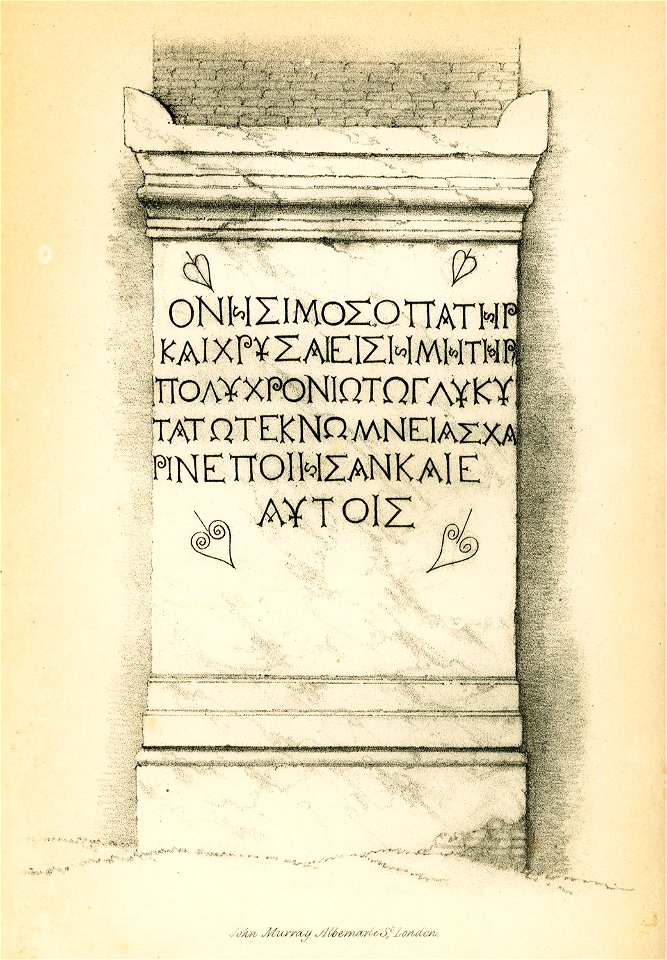 ΟΝΗΣΙΜΟΣΟΠΑΤΗΡ
ΚΑΙΧΡΥΣΑΙΕΙΣΗΜΗΤΗΡ
ΠΟΛΥΧΡΟΝΙΩΤΩΓΛΥΚΥ
ΤΑΤΩΤΕΚΝΩΜΝΕΙΑΣΧΑ
ΡΙΝΕΠΟΙΗΣΑΝΚΑΙΕ
ΑΥΤΟΙΣ
John Murray Albemarle St. London.